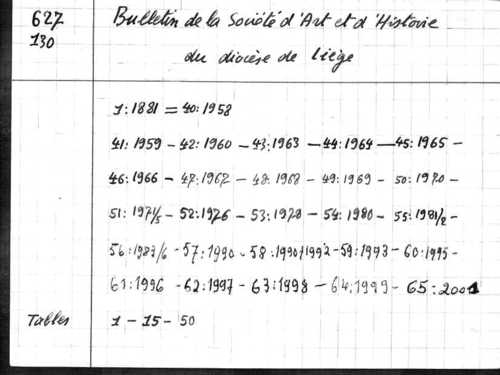 627 Bulletin de la Société d'Art et d'Histoire
130 du diocèse de Liège
1:1881 = 40:1958
41:1959 - 42:1960 - 43:1963 - 44:1964 - 45:1965 -
46:1966 - 47:1967 - 48:1968 - 49:1969 - 50:1970 -
51:1971/5 - 52:1976 - 53:1978 - 54:1980 - 55:1981/2 -
56:1983/6 - 57:1990 - 58:1990/1992 - 59:1993 - 60:1995 -
61:1996 - 62:1997 - 63:1998 - 64:1999 - 65:2001
Tables 1 - 15 - 50